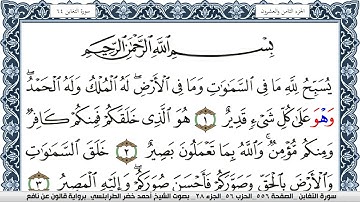 سورة التغابن ٦٤
الجزء الثامن والعشرون
بِسْمِ اللَّهِ الرَّحْمَٰنِ الرَّحِيمِ
يُسَبِّحُ لِلَّهِ مَا فِي السَّمَٰوَٰتِ وَمَا فِي الْأَرْضِ لَهُ الْمُلْكُ وَلَهُ الْحَمْدُ
وَهُوَ عَلَىٰ كُلِّ شَيْءٍ قَدِيرٌ ١ هُوَ الَّذِي خَلَقَكُمْ فَمِنكُمْ كَافِرٌ
وَمِنكُم مُّؤْمِنٌ وَاللَّهُ بِمَا تَعْمَلُونَ بَصِيرٌ ٢ خَلَقَ السَّمَٰوَٰتِ
وَالْأَرْضَ بِالْحَقِّ وَصَوَّرَكُمْ فَأَحْسَنَ صُوَرَكُمْ وَإِلَيْهِ الْمَصِيرُ ٣
سورة التغابن الصفحة ٥٥٦ الحزب ٥٦ الجزء ٢٨ بصوت الشيخ أحمد خضر الطرابلسي . برواية قالون عن نافع